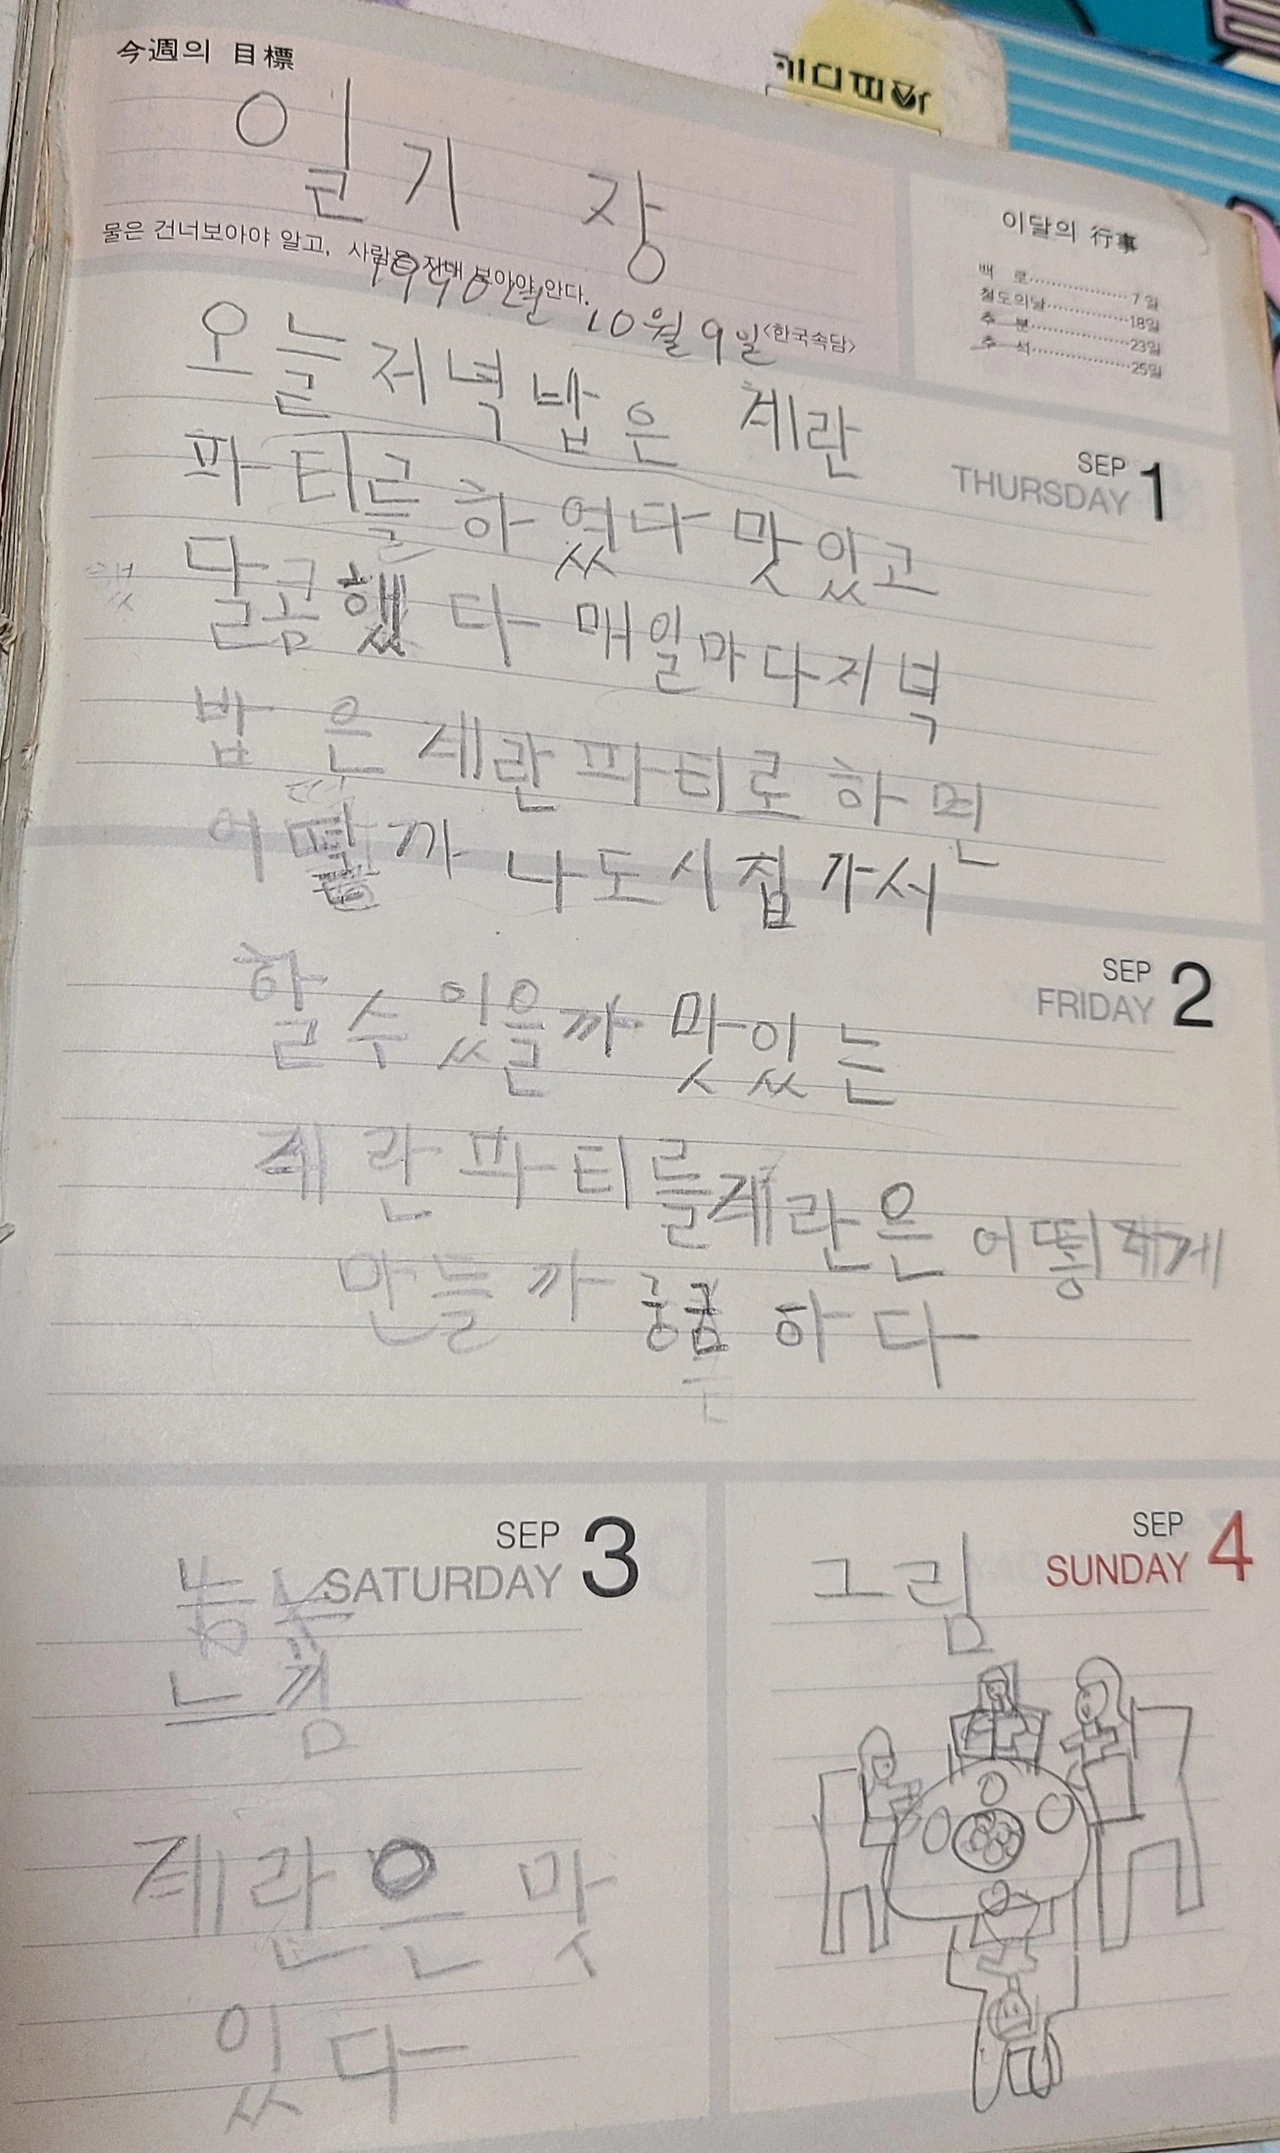 今週의 目標
일기장
물은 건너보아야 알고, 사람은 지내 보아야 안다.
<한국속담>
10월 9일
이달의 行事
백 로 7일
철도의날 18일
추 분 23일
추 석 25일
오늘저녁밥은 계란
SEP 1
THURSDAY
파티를하였다맛있고
달콤했다매일마다저녁
밥은계란파티로하면
어떨까나도시집가서
SEP 2
FRIDAY
할수있을까맛있는
계란파티를계란은어떻게
만들까궁굼하다
SEP 3
SATURDAY
느낌
계란은맛
있다
SEP 4
SUNDAY
그림